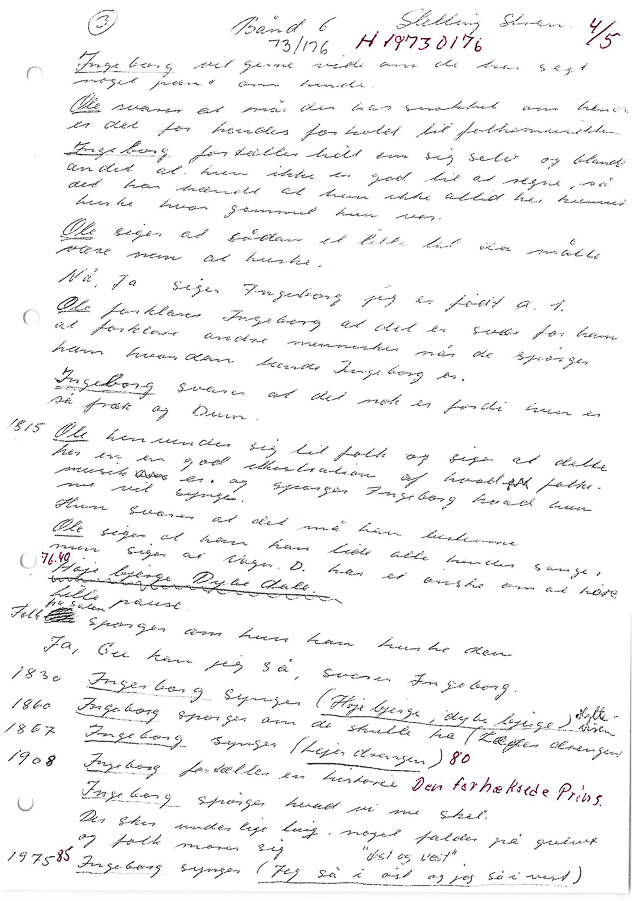 3 Bånd 6 Stelling Stven. 4/5
73/176 H 19730176
Ingeborg vil gerne vide om de har sagt
noget pænt om hende.
Ole svarer at når der har snakket om hende
er det for hendes forhold til folkemusikken
Ingeborg fortæller lidt om sig selv og blandt
andet at hun ikke er god til at regne, så
det har hændt at hun ikke altid har kunnet
huske hvor gammel hun var.
Ole siger at sådan et lille tal da måtte
være nem at huske.
Nå, Ja siger Ingeborg jeg er født a. 1.
Ole forklarer Ingeborg at det er svært for ham
at forklare andre mennesker når de spørger
ham hvordan hende Ingeborg er.
Ingeborg svarer at det nok er fordi hun er
så fræk og Dum.
1815 Ole henvender sig til folk og siger at dette
her er en god illustration af hvad folke-
musik er. og spørger Ingeborg hvad hun
nu vil synge.
Hun svarer at det må han bestemme
Ole siger at han kan lide alle hendes sange,
men siger at Vagn. D. har et ønske om at høre
76.40 Høje bjerge Dybe dale.
lille pause.
Folk på salen spørger om hun kan huske den
Ja, Gu kan jeg så, svarer Ingeborg.
1830 Ingeborg synger (Høje bjerge, dybe bjerge) Hytte-visen
1860 Ingeborg spørger om de skulle ha (Lejerdrengen)
1867 Ingeborg synger (Lejerdrengen) 80
1908 Ingeborg fortæller en historie Den forheksede Prins.
Ingeborg spørger hvad vi nu skal.
Der sker underlige ting. noget falder på gulvet
og folk morer sig "øst og vest"
1975 85 Ingeborg synger (Jeg så i øst og jeg så i vest)